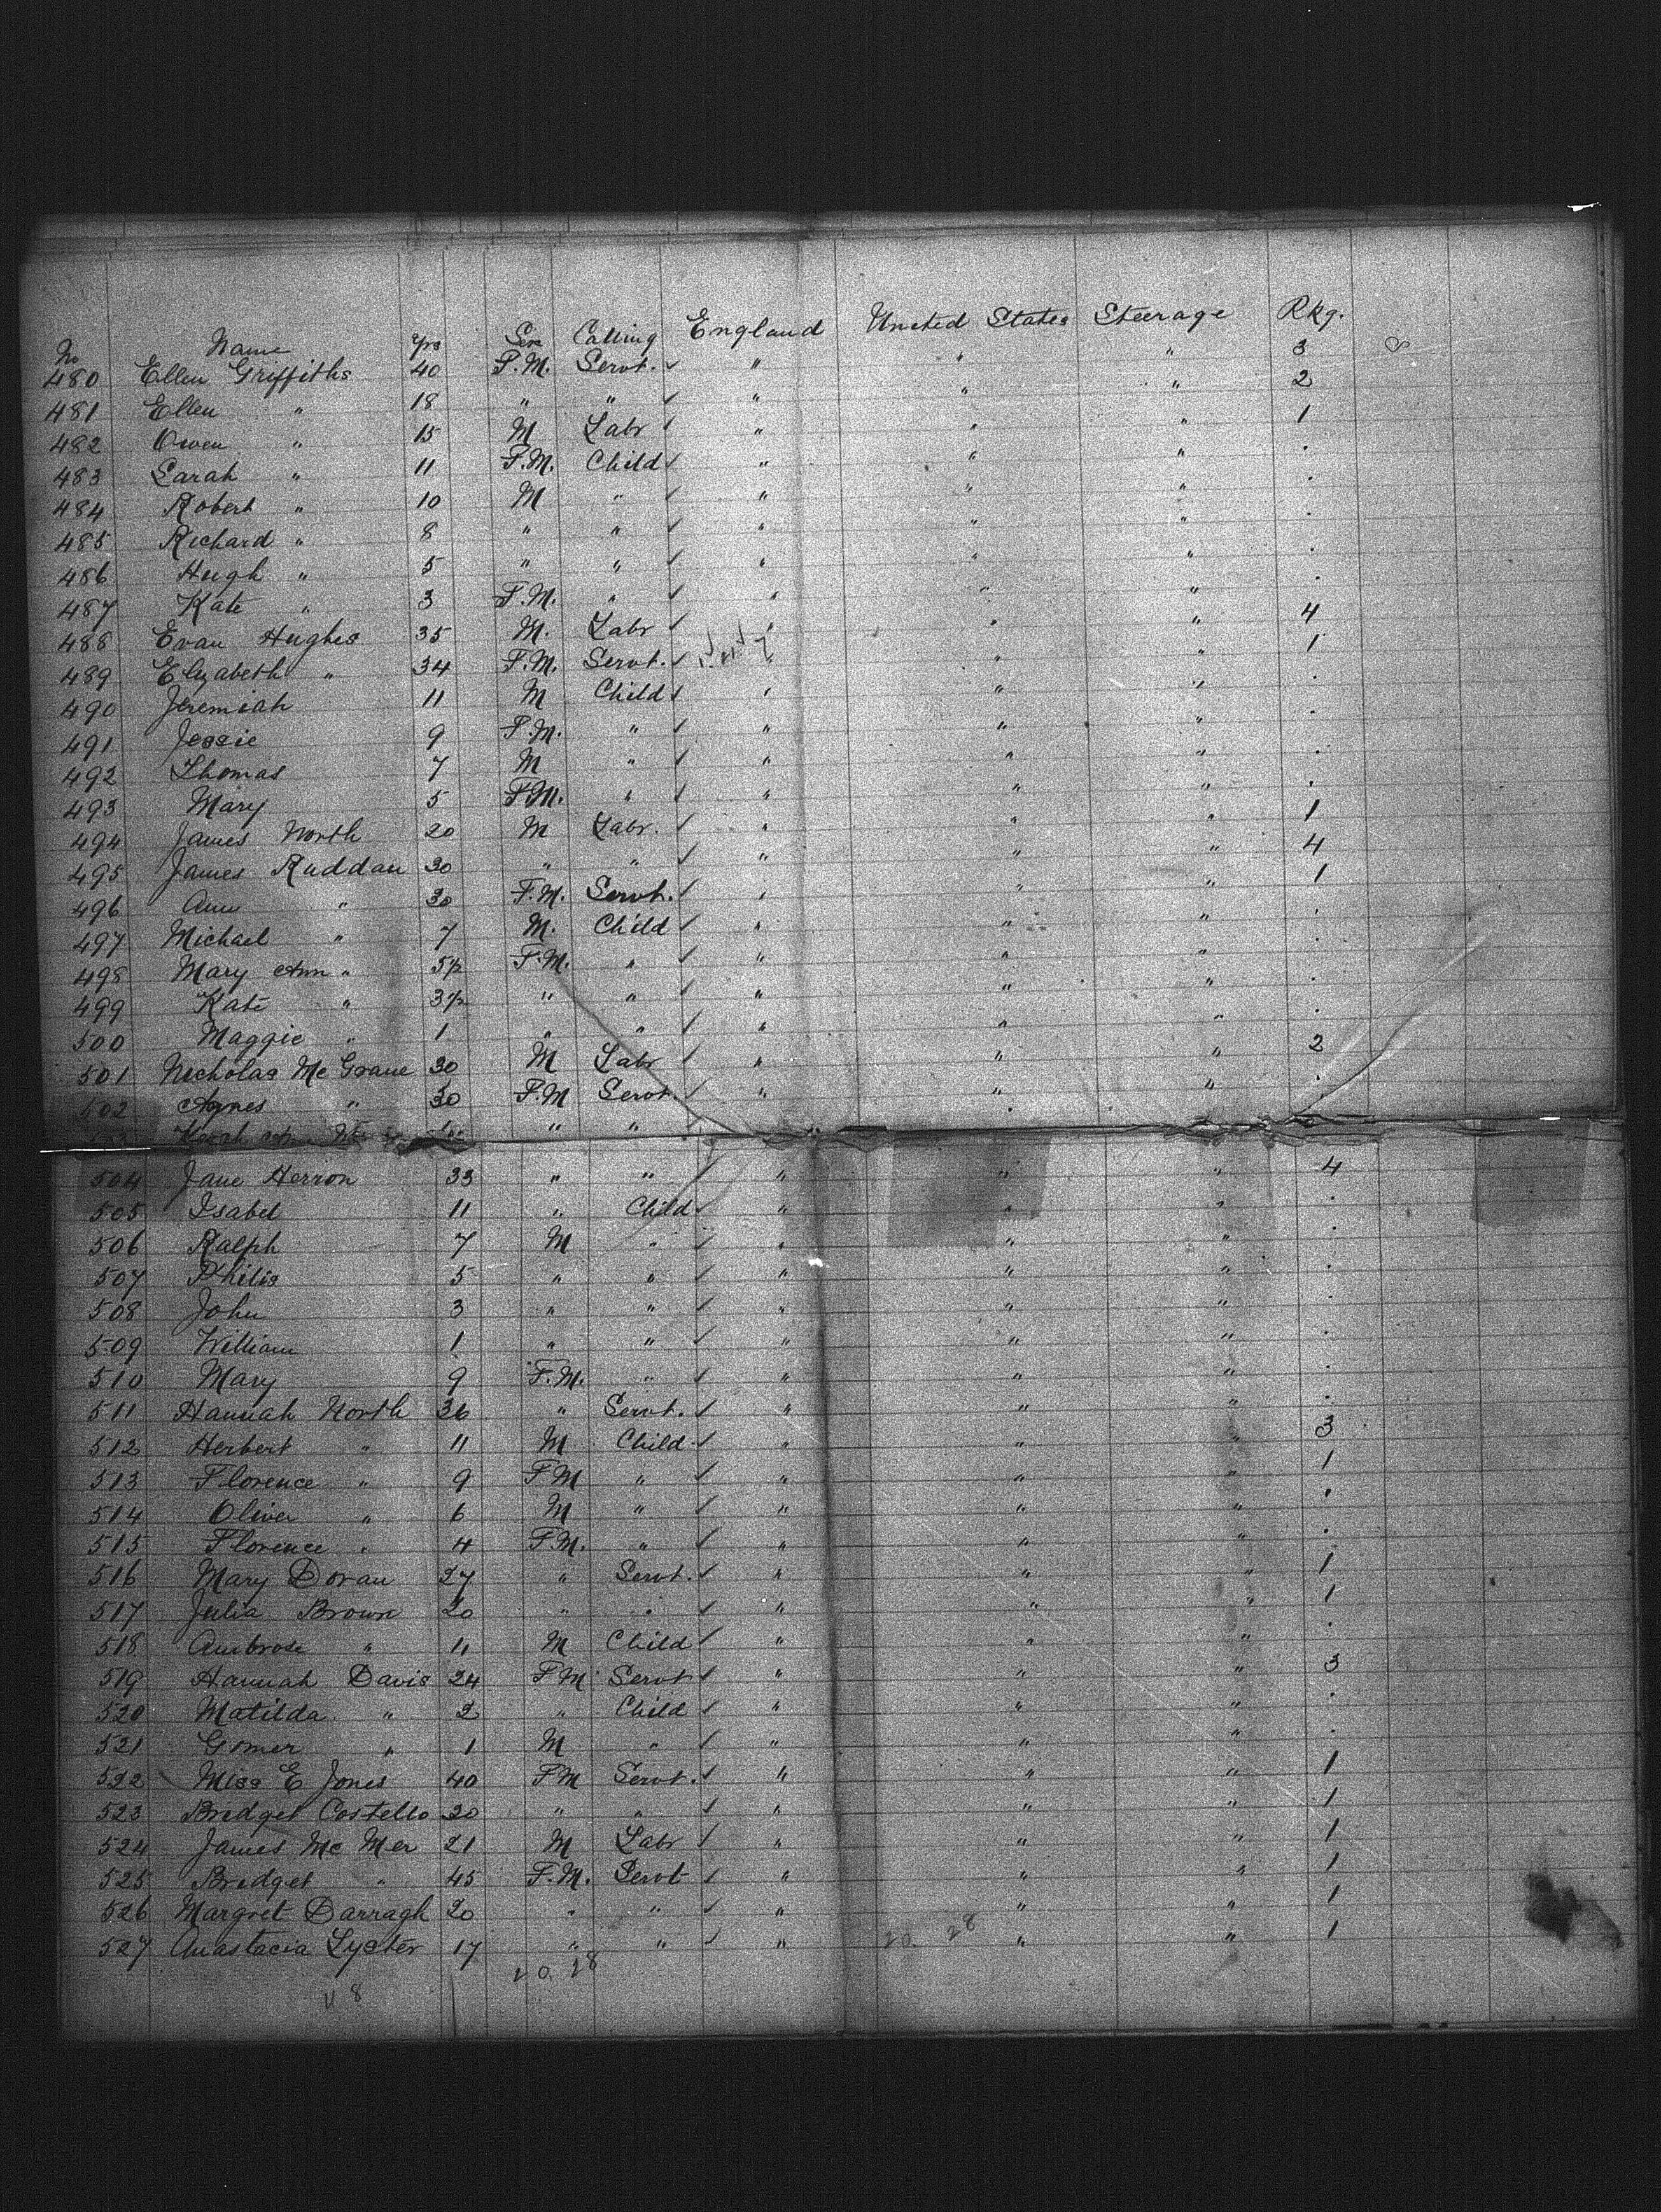 No Name Yrs Sex Calling England United States Steerage Pkg.
480 Ellen Griffiths 40 F.M. Servt. ✓ " " " 3
481 Ellen " 18 " " ✓ " " " 2
482 Owen " 15 M Labr ✓ " " " 1
483 Sarah " 11 F.M. Child ✓ " " " .
484 Robert " 10 M " ✓ " " " .
485 Richard " 8 " " ✓ " " " .
486 Hugh " 5 " " ✓ " " " .
487 Kate " 3 F.M. " ✓ " " " .
488 Evan Hughes 35 M. Labr ✓ " " " 4
489 Elizabeth " 34 F.M. Servt. ✓ " " " 1
490 Jeremiah 11 M Child ✓ " " " .
491 Jessie 9 F.M. " ✓ " " " .
492 Thomas 7 M " ✓ " " " .
493 Mary 5 F.M. " ✓ " " " .
494 James North 20 M Labr. ✓ " " " 1
495 James Ruddan 30 " " ✓ " " " 4
496 Ann " 30 F.M. Servt. ✓ " " " 1
497 Michael " 7 M. Child ✓ " " " .
498 Mary Ann " 5½ F.M. " ✓ " " " .
499 Kate " 3½ " " ✓ " " " .
500 Maggie " 1 " " ✓ " " " .
501 Nicholas Mc Grane 30 M Labr ✓ " " " 2
502 Agnes " 30 F.M Servt. ✓ " " " .
" "
504 Jane Herron 33 " " ✓ " " " 4
505 Isabel 11 " Child ✓ " " " .
506 Ralph 7 M " ✓ " " " .
507 Philis 5 " " ✓ " " " .
508 John 3 " " ✓ " " " .
509 William 1 " " ✓ " " " .
510 Mary 9 F.M. " ✓ " " " .
511 Hannah North 36 " Servt. ✓ " " " .
512 Herbert " 11 M Child ✓ " " " 3
513 Florence " 9 F M " ✓ " " " 1
514 Oliver " 6 M " ✓ " " " '
515 Florence " 4 F.M. " ✓ " " " .
516 Mary Doran 27 " Servt. ✓ " " " 1
517 Julia Brown 20 " " ✓ " " " 1
518 Ambrose " 11 M Child ✓ " " " .
519 Hannah Davis 24 F M Servt ✓ " " " 3
520 Matilda " 2 " Child ✓ " " " .
521 Gomer " 1 M " ✓ " " " .
522 Miss E Jones 40 F M Servt. ✓ " " " 1
523 Bridget Costello 20 " " ✓ " " " 1
524 James Mc Mer 21 M Labr ✓ " " " 1
525 Bridget " 45 F.M. Servt ✓ " " " 1
526 Margret Darragh 20 " " ✓ " " " 1
527 Anastacia Lyster 17 " " ✓ " " " 1
20 28
20. 28